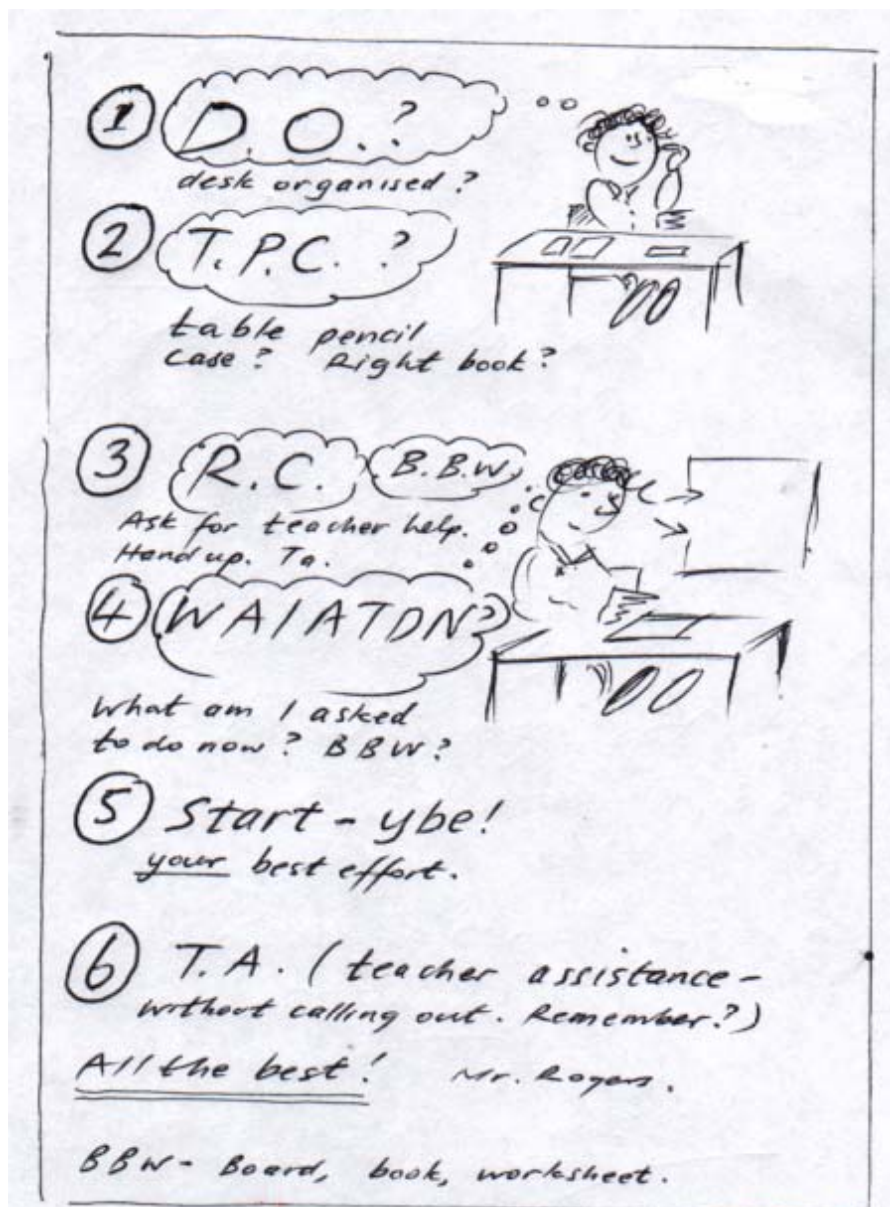 1 D.O.?
desk organised?
2 T.P.C. ?
table pencil
case? Right book?
3 R.C. B.B.W.
Ask for teacher help.
Hand up. Ta.
4 WAIATDN?
What am I asked
to do now? BBW?
5 Start - ybe!
your best effort.
6 T.A. (teacher assistance -
without calling out. Remember?)
All the best! Mr. Rogers.
BBW - Board, book, worksheet.